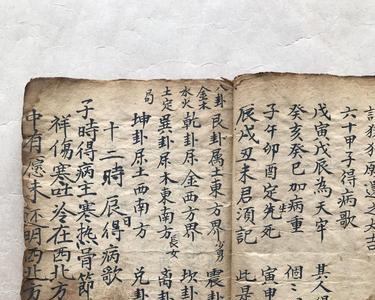 六十甲子得病歌
戊寅戊辰為天牢
癸亥癸巳加病重
子午卯酉定先死
辰戌丑未君須記
八卦
金木
水火
土定
局
艮卦属土東方界 少男 震卦
乾卦原金西方界 坎卦
巽卦原木東南方 長女 离卦
坤卦原土西南方 兑卦
十二時辰得病歌
子時得病主寒熱骨節
祥傷寒吐冷在西北方
中有愿未还明西北方